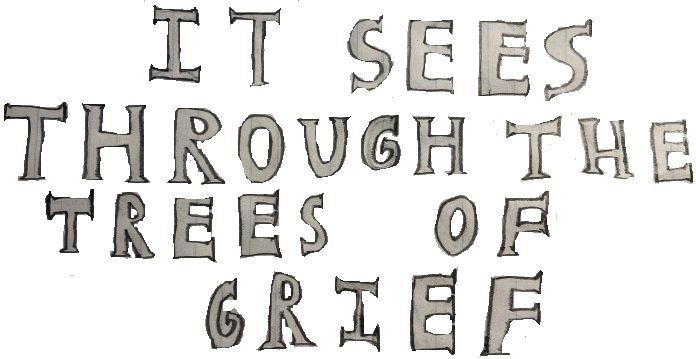 IT SEES
THROUGH THE
TREES OF
GRIEF